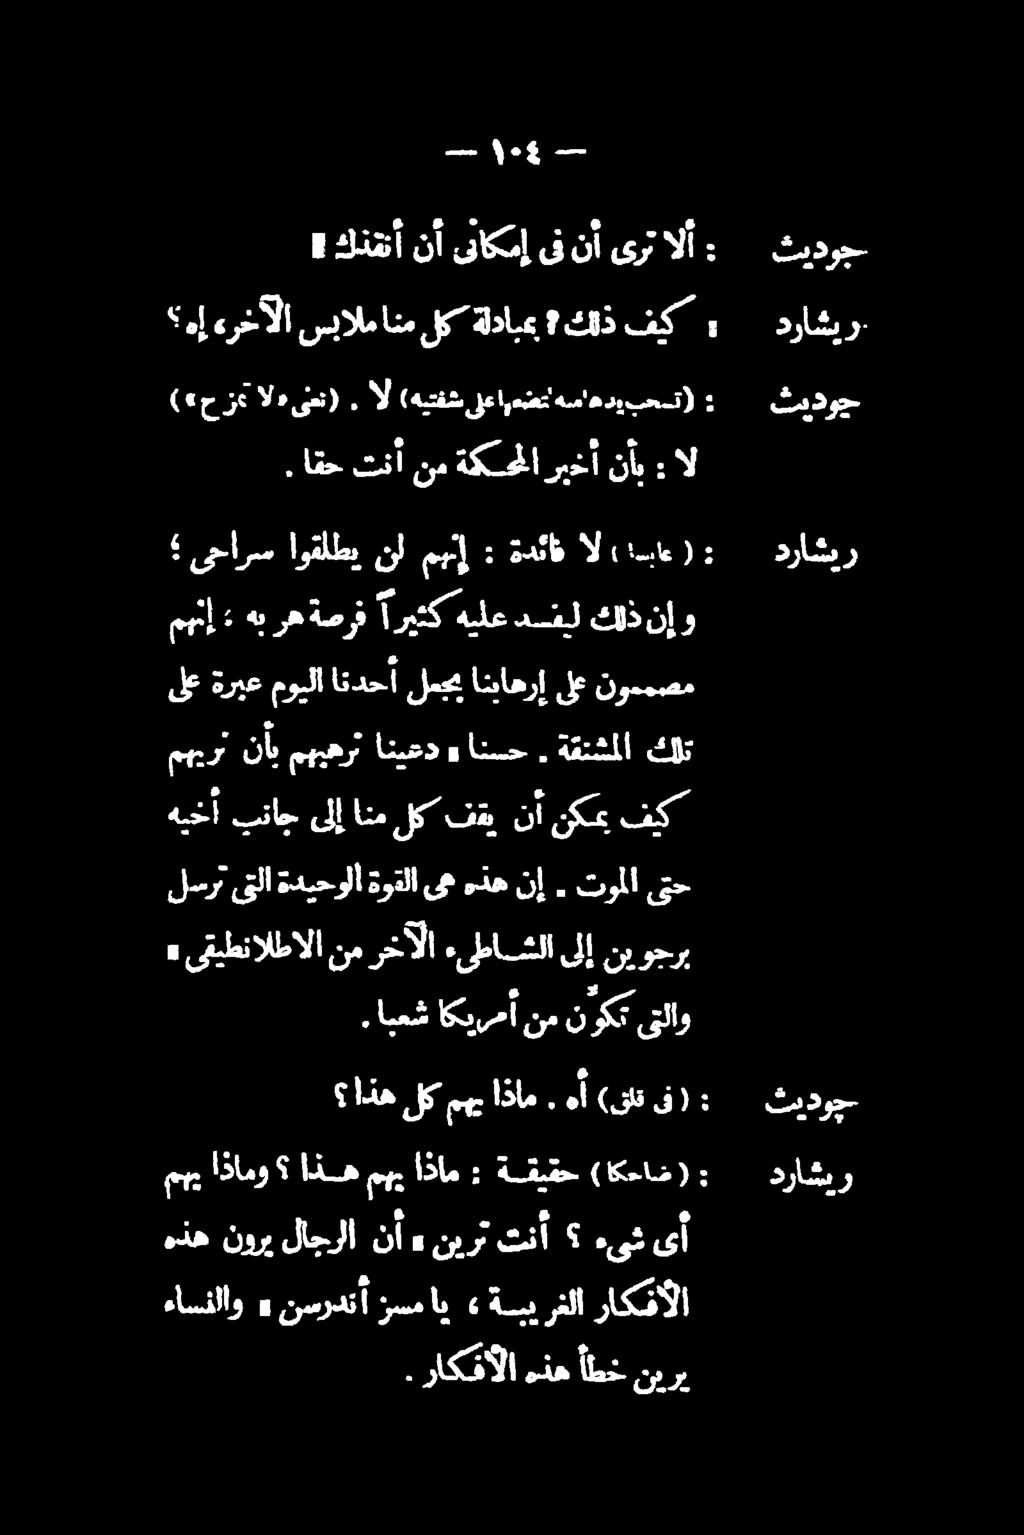 — ١٠٤ —
جوديث : ألا ترى أن فى إمكانى أن أنقذك
ريشارد : كيف ذلك؟ بمبادلة كل منا ملابس الآخر، إه؟
جوديث : (تسحب يدها من يده لتضعها على شفتيه) لا . (تعنى «لا تمزح»)
لا : بأن أخبر المحكمة من أنت حقا .
ريشارد : (عابسا) لا فائدة : إنهم لن يطلقوا سراحى ؛
وإن ذلك ليفسد عليه كثيراً فرصة هربه ؛ إنهم
مصممون على إرهابنا بجعل أحدنا اليوم عبرة على
تلك المشنقة . حسنا ، دعينا نرهبهم بأن نريهم
كيف يمكن أن يقف كل منا إلى جانب أخيه
حتى الموت . إن هذه هى القوة الوحيدة التى ترسل
برجوين إلى الشاطىء الآخر من الاطلانطيقى ،
والتى تكوّن من أمريكا شعبا .
جوديث : (فى قلق) أه . ماذا يهم كل هذا ؟
ريشارد : (ضاحكا) حقيقة : ماذا يهم هذا ؟ وماذا يهم
أى شىء ؟ أنت ترين ، أن الرجال يرون هذه
الأفكار الغريبة ، يا مسز أندرسن ، والنساء
يرين خطأ هذه الأفكار .